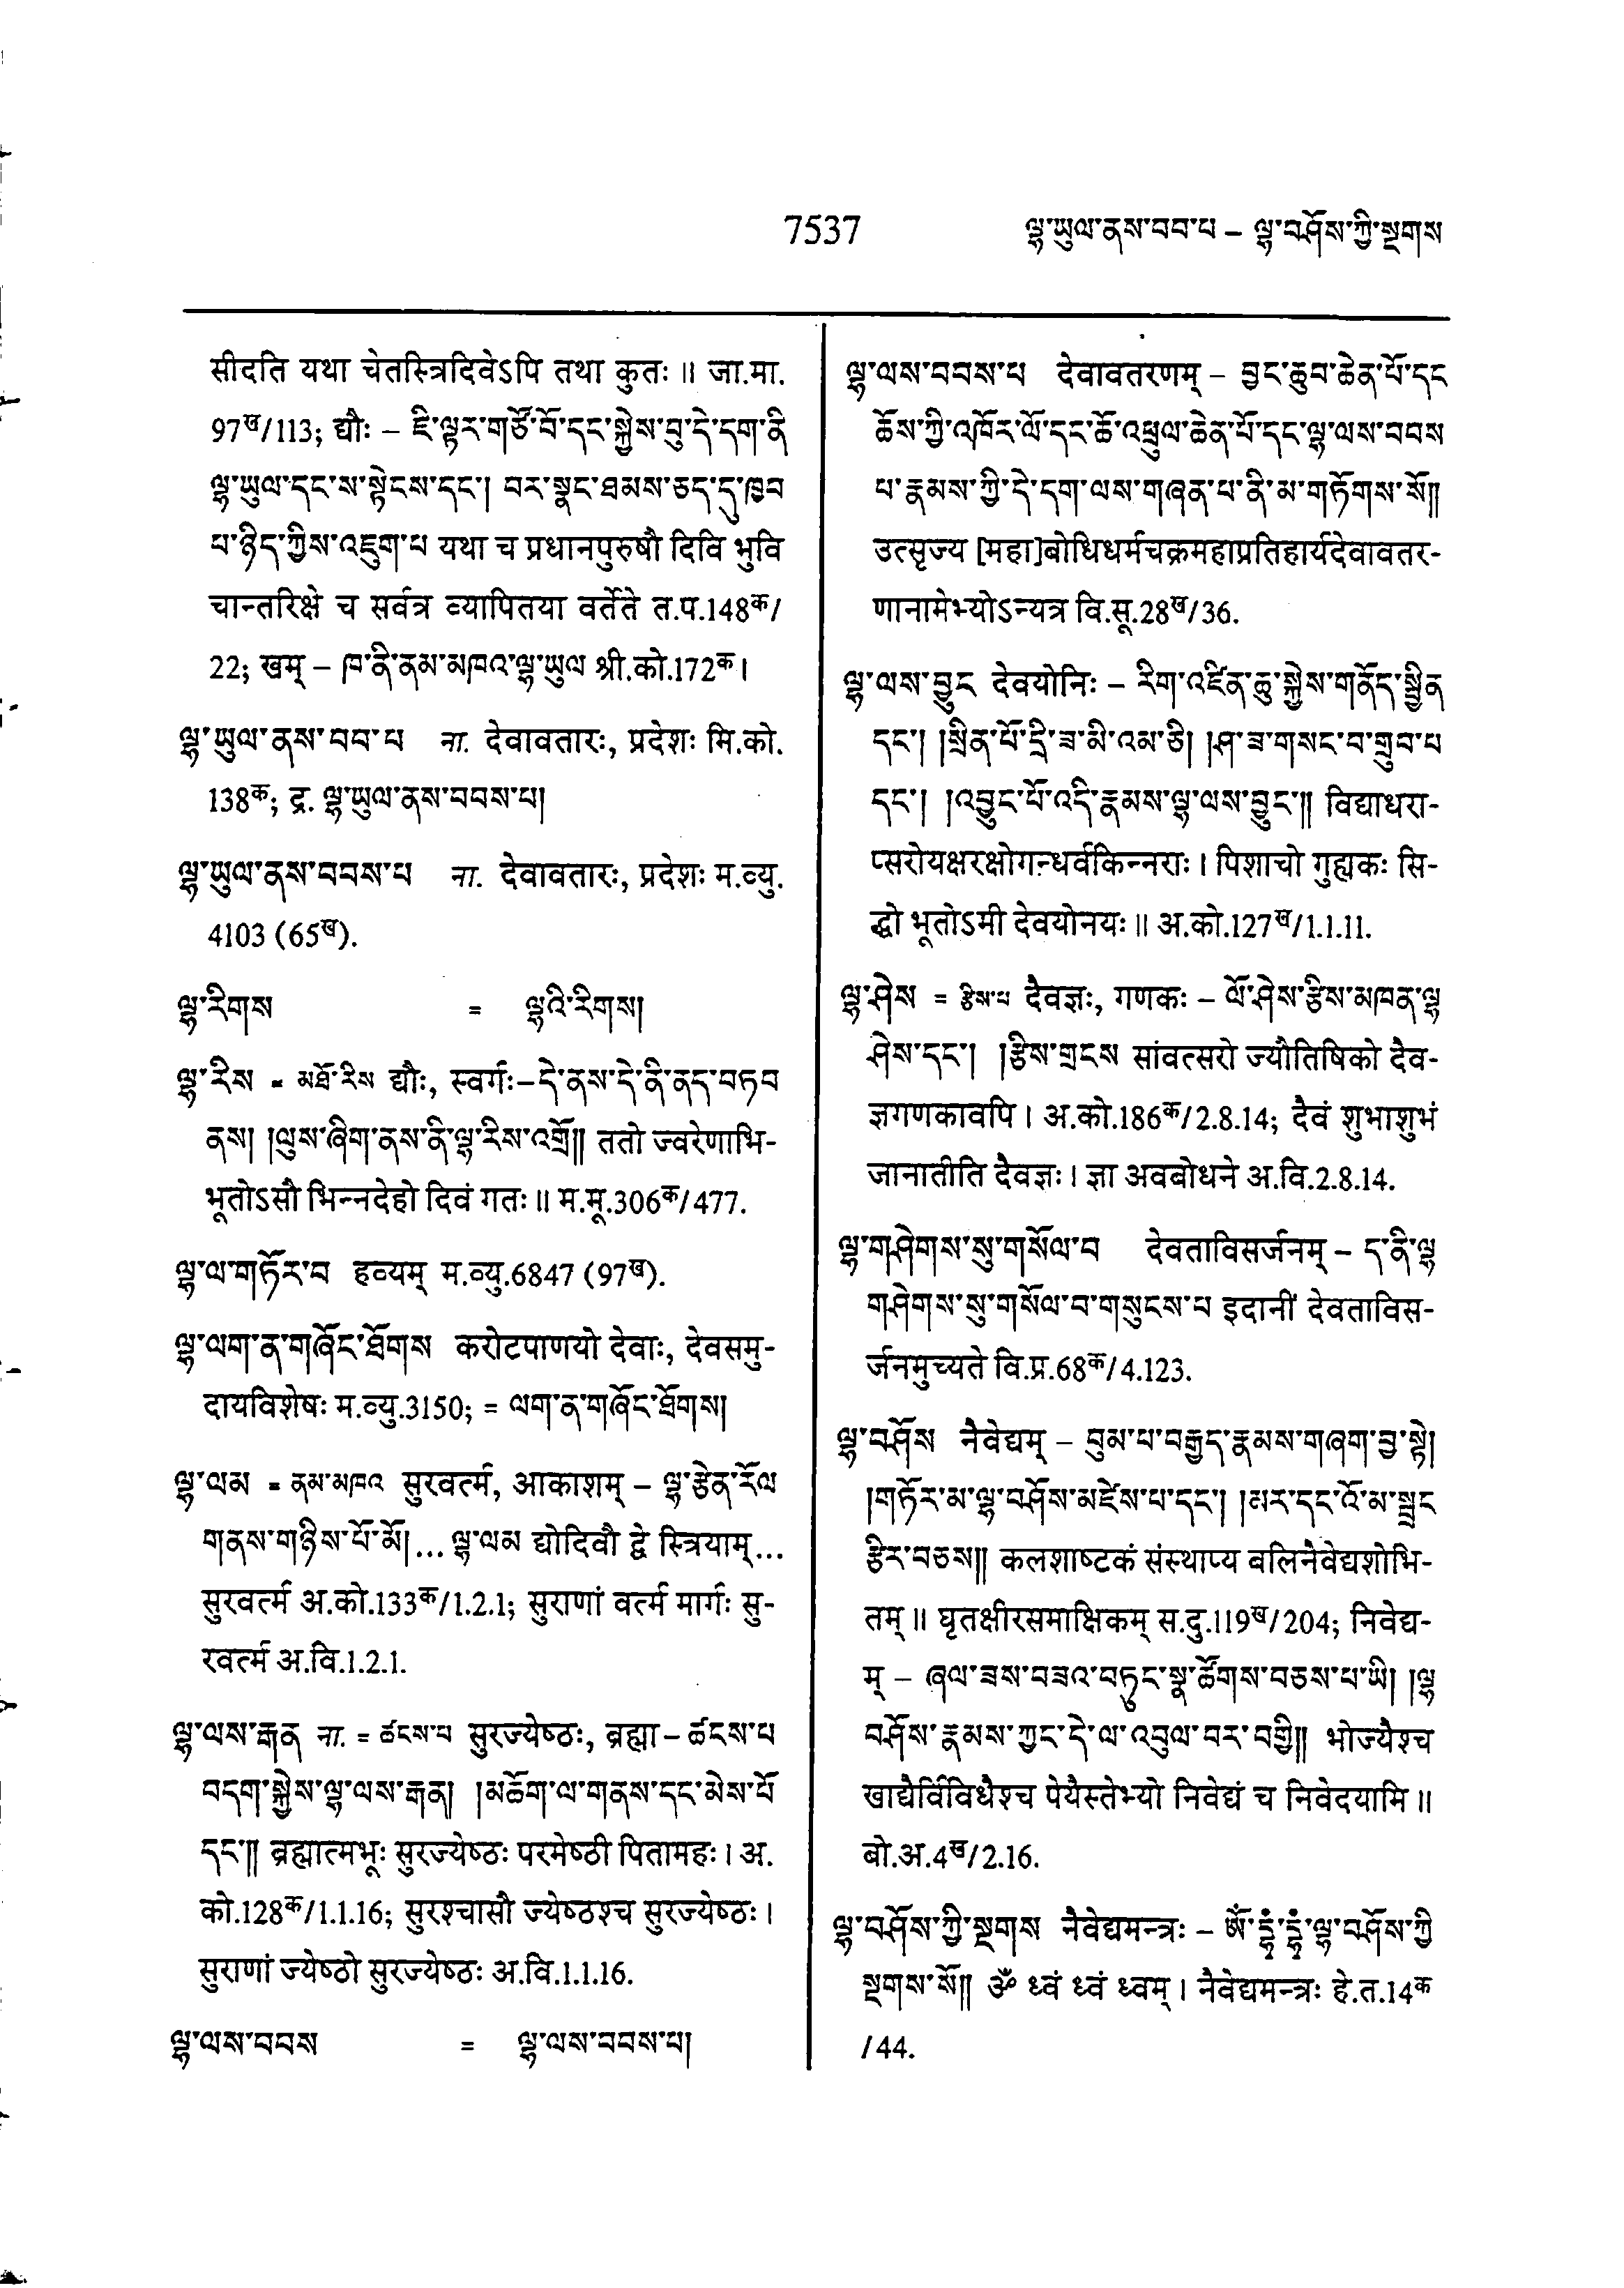 7537 ལྷ་ཡུལ་ནས་བབ་པ – ལྷ་བཤོས་ཀྱི་སྔགས
सीदति यथा चेतस्त्रिदिवेऽपि तथा कुतः ॥ जा.मा.
97ख/113; द्यौः – ཇི་ལྟར་གཙོ་བོ་དང་སྐྱེས་བུ་དེ་དག་ནི
ལྷ་ཡུལ་དང་ས་སྟེངས་དང་། བར་སྣང་ཐམས་ཅད་དུ་ཁྱབ
པ་ཉིད་ཀྱིས་འཇུག་པ यथा च प्रधानपुरुषौ दिवि भुवि
चान्तरिक्षे च सर्वत्र व्यापितया वर्तेते त.प.148क/
22; खम् – ཁ་ནི་ནམ་མཁའ་ལྷ་ཡུལ श्री.को.172क।
ལྷ་ཡུལ་ནས་བབ་པ ना. देवावतारः, प्रदेशः मि.को.
138क; द्र. ལྷ་ཡུལ་ནས་བབས་པ།
ལྷ་ཡུལ་ནས་བབས་པ ना. देवावतारः, प्रदेशः म.व्यु.
4103 (65ख).
ལྷ་རིགས = ལྷའི་རིགས།
ལྷ་རིས = མཐོ་རིས द्यौः, स्वर्गः–དེ་ནས་དེ་ནི་ནད་བཏབ
ནས། །ལུས་ཞིག་ནས་ནི་ལྷ་རིས་འགྲོ།། ततो ज्वरेणाभि-
भूतोऽसौ भिन्नदेहो दिवं गतः ॥ म.मू.306क/477.
ལྷ་ལ་གཏོར་བ हव्यम् म.व्यु.6847 (97ख).
ལྷ་ལག་ན་གཞོང་ཐོགས करोटपाणयो देवाः, देवसमु-
दायविशेषः म.व्यु.3150; = ལག་ན་གཞོང་ཐོགས།
ལྷ་ལམ = ནམ་མཁའ सुरवर्त्म, आकाशम् – ལྷ་རྩེན་རོལ
གནས་གཉིས་པོ་མོ།... ལྷ་ལམ द्योदिवौ द्वे स्त्रियाम्...
सुरवर्त्म अ.को.133क/1.2.1; सुराणां वर्त्म मार्गः सु-
रवर्त्म अ.वि.1.2.1.
ལྷ་ལས་རྒན ना. = ཚངས་པ सुरज्येष्ठः, ब्रह्मा – ཚངས་པ
བདག་སྐྱེས་ལྷ་ལས་རྒན། །མཆོག་ལ་གནས་དང་མེས་པོ
དང་།། ब्रह्मात्मभूः सुरज्येष्ठः परमेष्ठी पितामहः। अ.
को.128क/1.1.16; सुरश्चासौ ज्येष्ठश्च सुरज्येष्ठः।
सुराणां ज्येष्ठो सुरज्येष्ठः अ.वि.1.1.16.
ལྷ་ལས་བབས = ལྷ་ལས་བབས་པ།
ལྷ་ལས་བབས་པ देवावतरणम् – བྱང་ཆུབ་ཆེན་པོ་དང
ཆོས་ཀྱི་འཁོར་ལོ་དང་ཆོ་འཕྲུལ་ཆེན་པོ་དང་ལྷ་ལས་བབས
པ་རྣམས་ཀྱི་དེ་དག་ལས་གཞན་པ་ནི་མ་གཏོགས་སོ།།
उत्सृज्य [महा]बोधिधर्मचक्रमहाप्रतिहार्यदेवावतर-
णानामेभ्योऽन्यत्र वि.सू.28ख/36.
ལྷ་ལས་བྱུང देवयोनिः – རིག་འཛིན་ཆུ་སྐྱེས་གནོད་སྦྱིན
དང་། །སྲིན་པོ་དྲི་ཟ་མི་འམ་ཅི། །ཤ་ཟ་གསང་བ་གྲུབ་པ
དང་། །འབྱུང་པོ་འདི་རྣམས་ལྷ་ལས་བྱུང་།། विद्याधरा-
प्सरोयक्षरक्षोगन्धर्वकिन्नराः। पिशाचो गुह्यकः सि-
द्धो भूतोऽमी देवयोनयः ॥ अ.को.127ख/1.1.11.
ལྷ་ཤེས = རྩིས་པ दैवज्ञः, गणकः – ལོ་ཤེས་རྩིས་མཁན་ལྷ
ཤེས་དང་། །རྩིས་གྲངས सांवत्सरो ज्यौतिषिको दैव-
ज्ञगणकावपि। अ.को.186क/2.8.14; दैवं शुभाशुभं
जानातीति दैवज्ञः। ज्ञा अवबोधने अ.वि.2.8.14.
ལྷ་གཤེགས་སུ་གསོལ་བ देवताविसर्जनम् – ད་ནི་ལྷ
གཤེགས་སུ་གསོལ་བ་གསུངས་པ इदानीं देवताविस-
र्जनमुच्यते वि.प्र.68क/4.123.
ལྷ་བཤོས नैवेद्यम् – བུམ་པ་བརྒྱད་རྣམས་གཞག་བྱ་སྟེ།
།གཏོར་མ་ལྷ་བཤོས་མཛེས་པ་དང་། །མར་དང་འོ་མ་སྦྲང
རྩིར་བཅས།། कलशाष्टकं संस्थाप्य बलिनैवेद्यशोभि-
तम् ॥ घृतक्षीरसमाक्षिकम् स.दु.119ख/204; निवेद्य-
म् – ཞལ་ཟས་བཟའ་བཏུང་སྣ་ཚོགས་བཅས་པ་ཡི། །ལྷ
བཤོས་རྣམས་ཀྱང་དེ་ལ་འབུལ་བར་བགྱི།། भोज्यैश्च
खाद्यैर्विविधैश्च पेयैस्तेभ्यो निवेद्यं च निवेदयामि ॥
बो.अ.4ख/2.16.
ལྷ་བཤོས་ཀྱི་སྔགས नैवेद्यमन्त्रः – ཨོཾ་དྷྭཾ་དྷྭཾ་ལྷ་བཤོས་ཀྱི
སྔགས་སོ།། ॐ ध्वं ध्वं ध्वम्। नैवेद्यमन्त्रः हे.त.14क
/44.